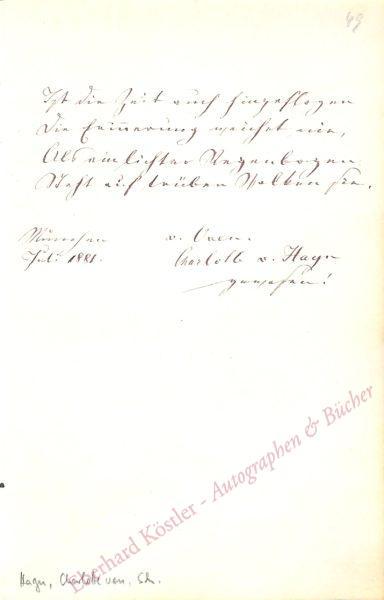 49
Ist die Zeit auch hingeflogen
Die Erinnerung weichet nie,
Als ein lichter Regenbogen
Steht auf trüben Wolken sie.
München v. Oven.
Juli 1881. Charlotte v. Hagn
gewesen!
Eberhard Köstler - Autographen & Bücher
Hagn, Charlotte von, Sch.